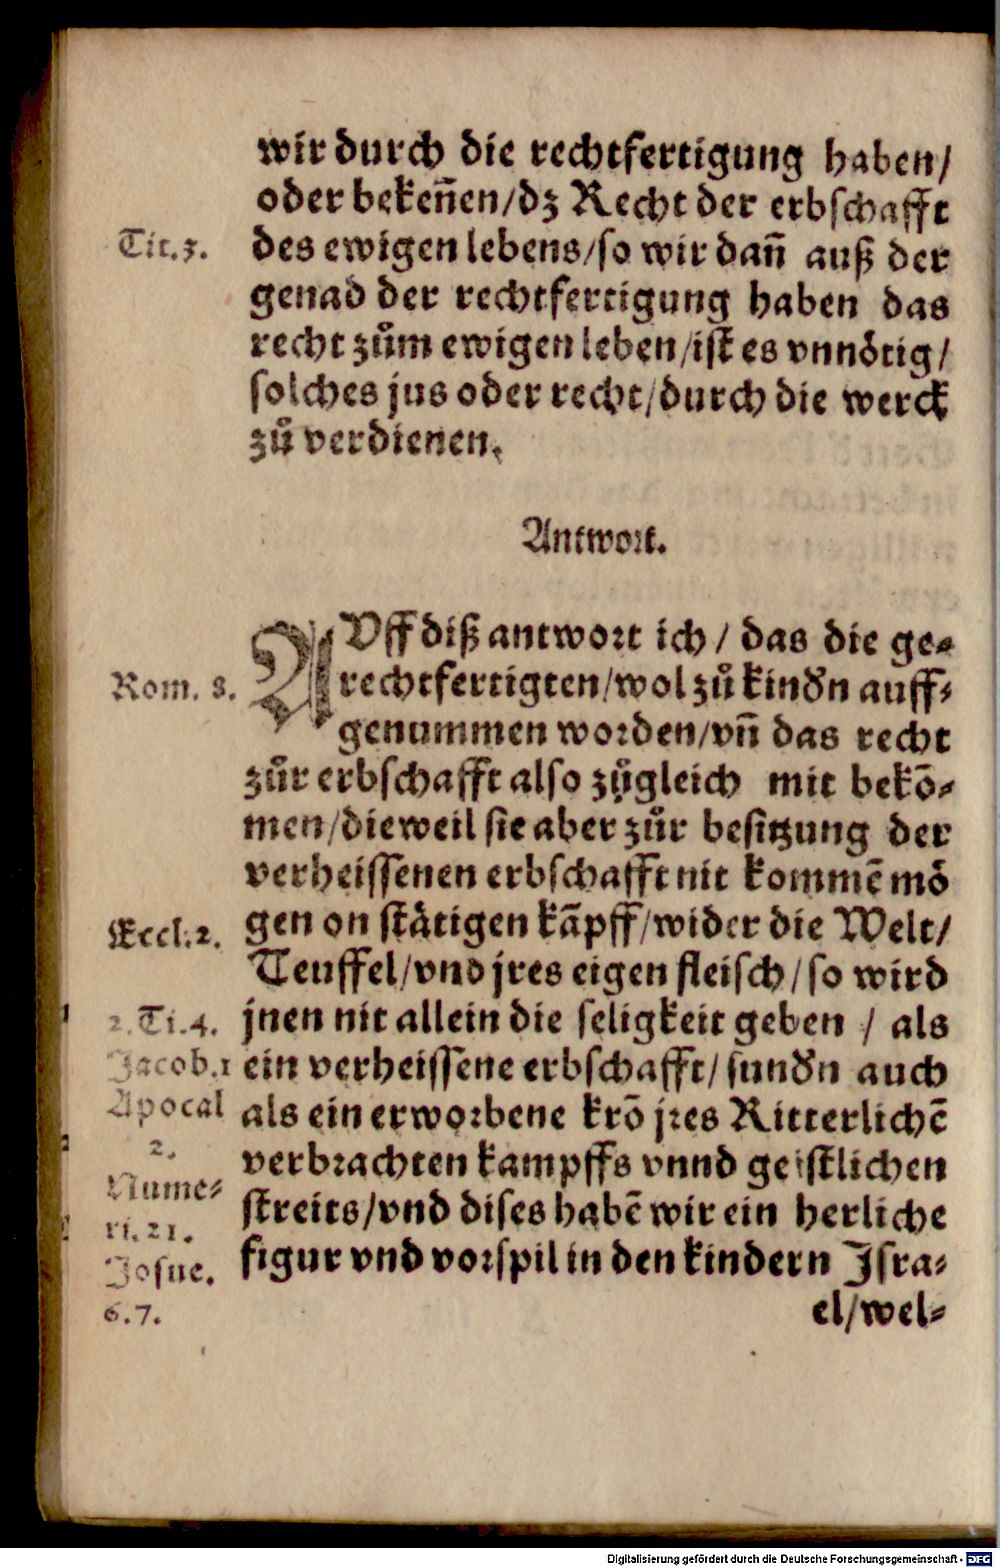 wir durch die rechtfertigung haben/
oder bekeñen/dz Recht der erbschafft
Tit.3.
des ewigen lebens/so wir dañ auß der
genad der rechtfertigung haben das
recht zům ewigen leben/ist es vnnötig/
solches jus oder recht/durch die werck
zů verdienen.
Antwort.
AVff diß antwort ich / das die ge⸗
Rom. 8.
rechtfertigten/wol zů kindn̄ auff⸗
genummen worden/vñ das recht
zůr erbschafft also zůgleich mit bekõ⸗
men/dieweil sie aber zůr besitzung der
verheissenen erbschafft nit kommẽ mö
Eccl.2.
gen on stätigen kãpff/wider die Welt/
Teuffel/vnd jres eigen fleisch/so wird
2.Ti.4.
jnen nit allein die seligkeit geben / als
Jacob.1
ein verheissene erbschafft/sundn̄ auch
Apocal
als ein erworbene krõ jres Ritterlichẽ
2.
verbrachten kampffs vnnd geistlichen
Nume⸗
streits/vnd dises habẽ wir ein herliche
ri.21.
figur vnd vorspil in den kindern Jsra⸗
Josue.
6.7.
el/wel⸗
Digitalisierung gefördert durch die Deutsche Forschungsgemeinschaft - DFG